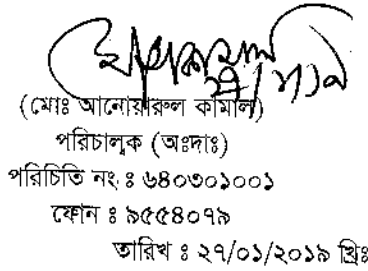 (মোঃ আনোয়ারুল কামাল)
পরিচালক (অঃদাঃ)
পরিচিতি নং ঃ ৬৪০৩০১০০১
ফোন ঃ ৯৫৫৪০৭৯
তারিখ ঃ ২৭/০১/২০১৯ খ্রিঃ